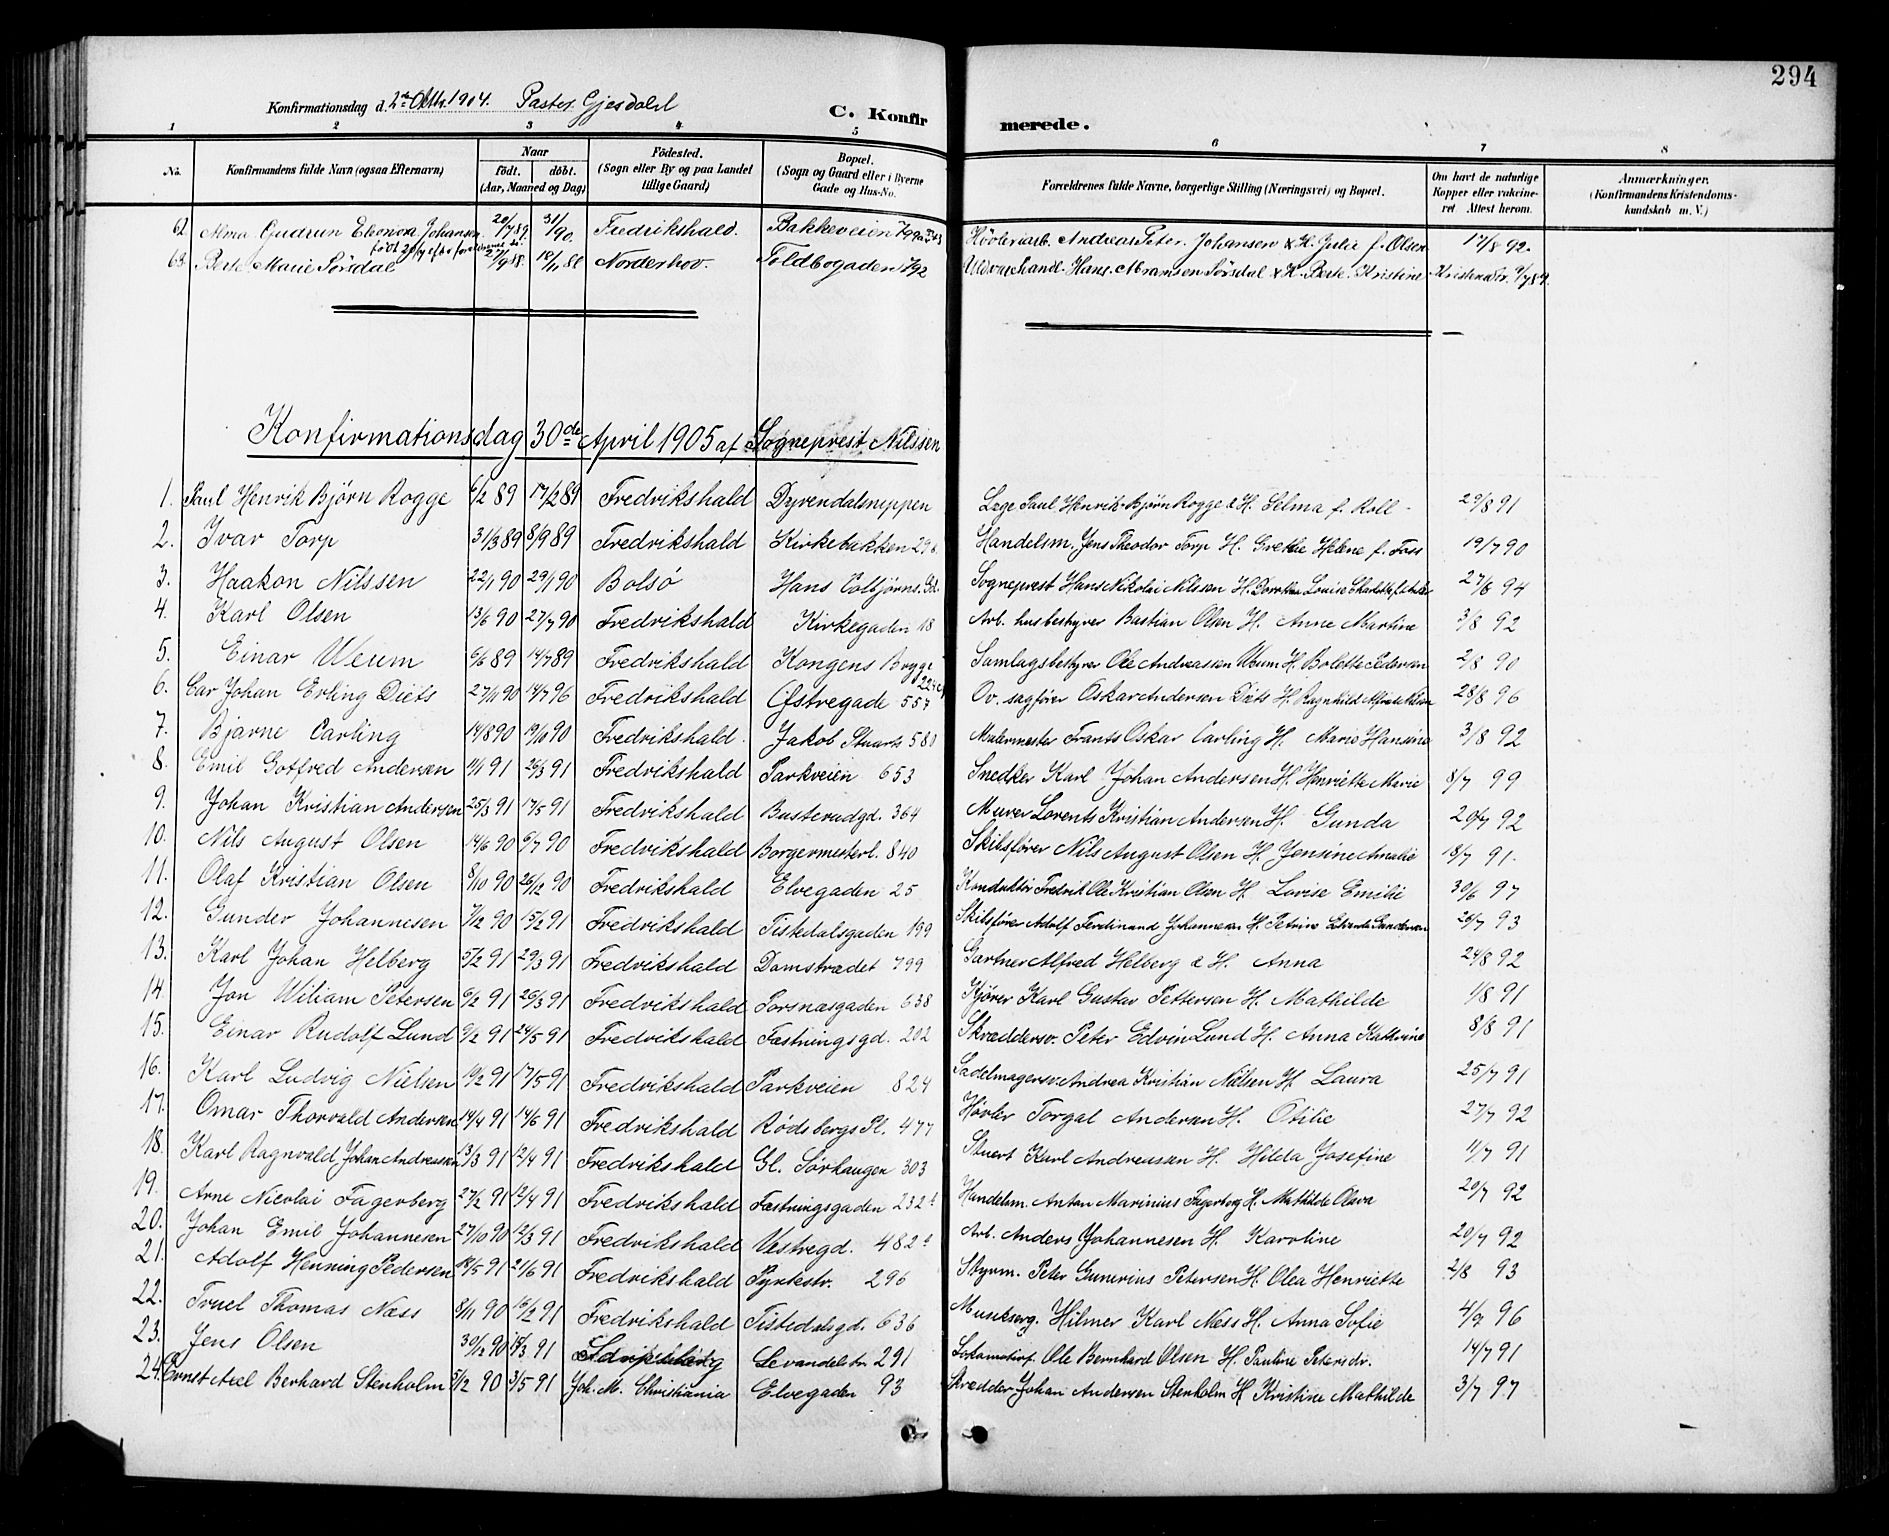 294
Konfirmationsdag d. 2den Oktbr. 1904. Pastor Gjesdahl
C. Konfirmerede.
1 2 3 4 5 6 7 8
No. Konfirmandens fulde Navn (ogsaa Efternavn) Naar født. døbt. (Aar, Maaned og Dag) Fødested. (Sogn eller By og paa Landet tillige Gaard) Bopæl. (Sogn og Gaard eller i Byerne Gade og Hus-No. Forældrenes fulde Navne, borgerlige Stilling (Næringsvei) og Bopæl. Om havt de naturlige Kopper eller vakcineret. Attest herom. Anmærkninger. (Konfirmandens Kristendomskundskab m. V.)
62 Alma Gudrun Eleonora Johansen 20/7 89. 31/ 90. Fredrikshald. Bakkeveien Høvleriarb. Andreas Peter Johansen & H. Julie f. Olsen 17/8 92.
63. Berte Marie Sørsdal 27/9 88. 18/11 88 Norderhov. Toldbogaden 792 Uldvarehandl. Hans Sørsdal & H. Berte Kristine
Konfirmationsdag 30de April 1905 af Sogneprest Nilssen
1. Paul Henrik Bjørn Rogge 6/2 89 17/2 89 Fredrikshald Dyrendalsneppen Læge Paul Henrik Bjørn Rogge & H. Selma f. Roll 29/8 91
2. Ivar Torp 31/3 89 8/9 89 Fredrikshald Kirkebakken 29 Handelsm. Jens Theodor Torp H. Grethe Helene f. Foss 19/7 90
3. Haakon Nilssen 22/1 90 29/1 90 Bolsö Hans Colbjørns. Gd. Sogneprest Hans Nikolai Nilssen H. Dorothea Louise Charlotte 27/6 94
4. Karl Olsen 13/6 90 27/7 90 Fredrikshald Kirkegaden 18 Arb. husbestyrer Bastian Olsen H. Anne Martine 3/8 92
5. Einar Weum 6/6 89 14/7 89 Fredrikshald Kongens Brygge 224 Samlagsbestyrer Ole Andreassen Weum H. Bolette Pedersen 2/8 90
6. Car Johan Erling Diets 27/11 90 14/7 96 Fredrikshald Østregade 557 Ov. sagfører Oskar Andersen Diets H. Ragnhild 28/8 96
7. Bjarne Carling 14/8 90 19/10 90 Fredrikshald. Jakob Stuarts 580 Murermester Frants Oskar Carling H. Marie Hansine 3/8 92
8. Emil Gotfred Andersen 11/1 91 26/3 91 Fredrikshald Parkveien 653 Snedker Karl Johan Andersen H. Henriette Marie 8/7 99
9. Johan Kristian Andersen 25/3 91 17/5 91 Fredrikshald Busterudgd. 364 Murer Lorents Kristian Andersen H. Gunda 20/7 92
10. Nils August Olsen 14/6 90 6/7 90 Fredrikshald Borgermesterl. 840 Skibsfører Nils August Olsen H. Jensine Amalie 18/7 91.
11. Olaf Kristian Olsen 8/10 90 26/12 90 Fredrikshald Elvegaden 25 Konduktør Fredrik Ole Kristian Olsen H. Lovise Emilie 30/6 97
12. Gunder Johannesen 7/12 90 15/2 91 Fredrikshald Tistedalsgaden 199 Skibsfører Adolf Ferdinand Johannesen H. Petrine Gundersen 26/7 93
13. Karl Johan Helberg 5/2 91 29/3 91 Fredrikshald Damstrædet 799 Gartner Alfred Helberg & H. Anna 24/8 92
14. Jon Wiliam Petersen 6/2 91 26/3 91 Fredrikshald Porsnæsgaden 638 Kjører Karl Gustav Pettersen H. Mathilde 1/8 91
15. Einar Rudolf Lund 9/2 91 24/5 91 Fredrikshald Fæstningsgd. 202 Skræddersv. Peter Edvin Lund H. Anna Kathrine 8/8 91
16. Karl Ludvig Nielsen 19/2 91 17/5 91 Fredrikshald Parkveien 824 Sadelmagersv. Andrea Kristian Nielsen H. Laura 25/7 91
17. Omar Thorvald Andersen 14/4 91 14/6 91 Fredrikshald Rødsbergs Pl. 477 Høvler Torgal Andersen H. Otilie 27/7 92
18. Karl Ragnvald Johan Andreassen 13/3 91 12/4 91 Fredrikshald Gl. Sørhaugen 303 Stuert Karl Andreassen H. Hilda Josefine 11/7 91
19. Arne Nicolai Fagerberg 27/2 91 12/4 91 Fredrikshald Fæstningsgaden 232 Handelsm. Anton Marinius Fagerberg H. Mathilde Olava 20/7 92
20. Johan Emil Johannesen 27/10 90 12/3 91 Fredrikshald Vestregd. 482 Arb. Anders Johannesen H. Karoline 20/7 92
21. Adolf Henning Pedersen 18/5 91 21/6 91 Fredrikshald Pyntestr. 296 Styrm. Peter Gunerius Petersen H. Olea Henriette 2/8 93
22. Truel Thomas Næss 8/11 90 15/2 91 Fredrikshald Tistedalsgd. 636 Hilmer Karl Næss H. Anna Sofie 4/9 96
23. Jens Olsen 30/12 90 15/3 91 Levandelstr. 291 Lokomotivf. Ole Bernhard Olsen H. Pauline Petersdr. 14/7 91
24. Ernst Axel Berhard Stenholm 5/12 90 3/5 91 Joh. M. Christiania Elvegaden 93 Skrædder Johan Andersen Stenholm H Kristine Mathilde 3/7 97